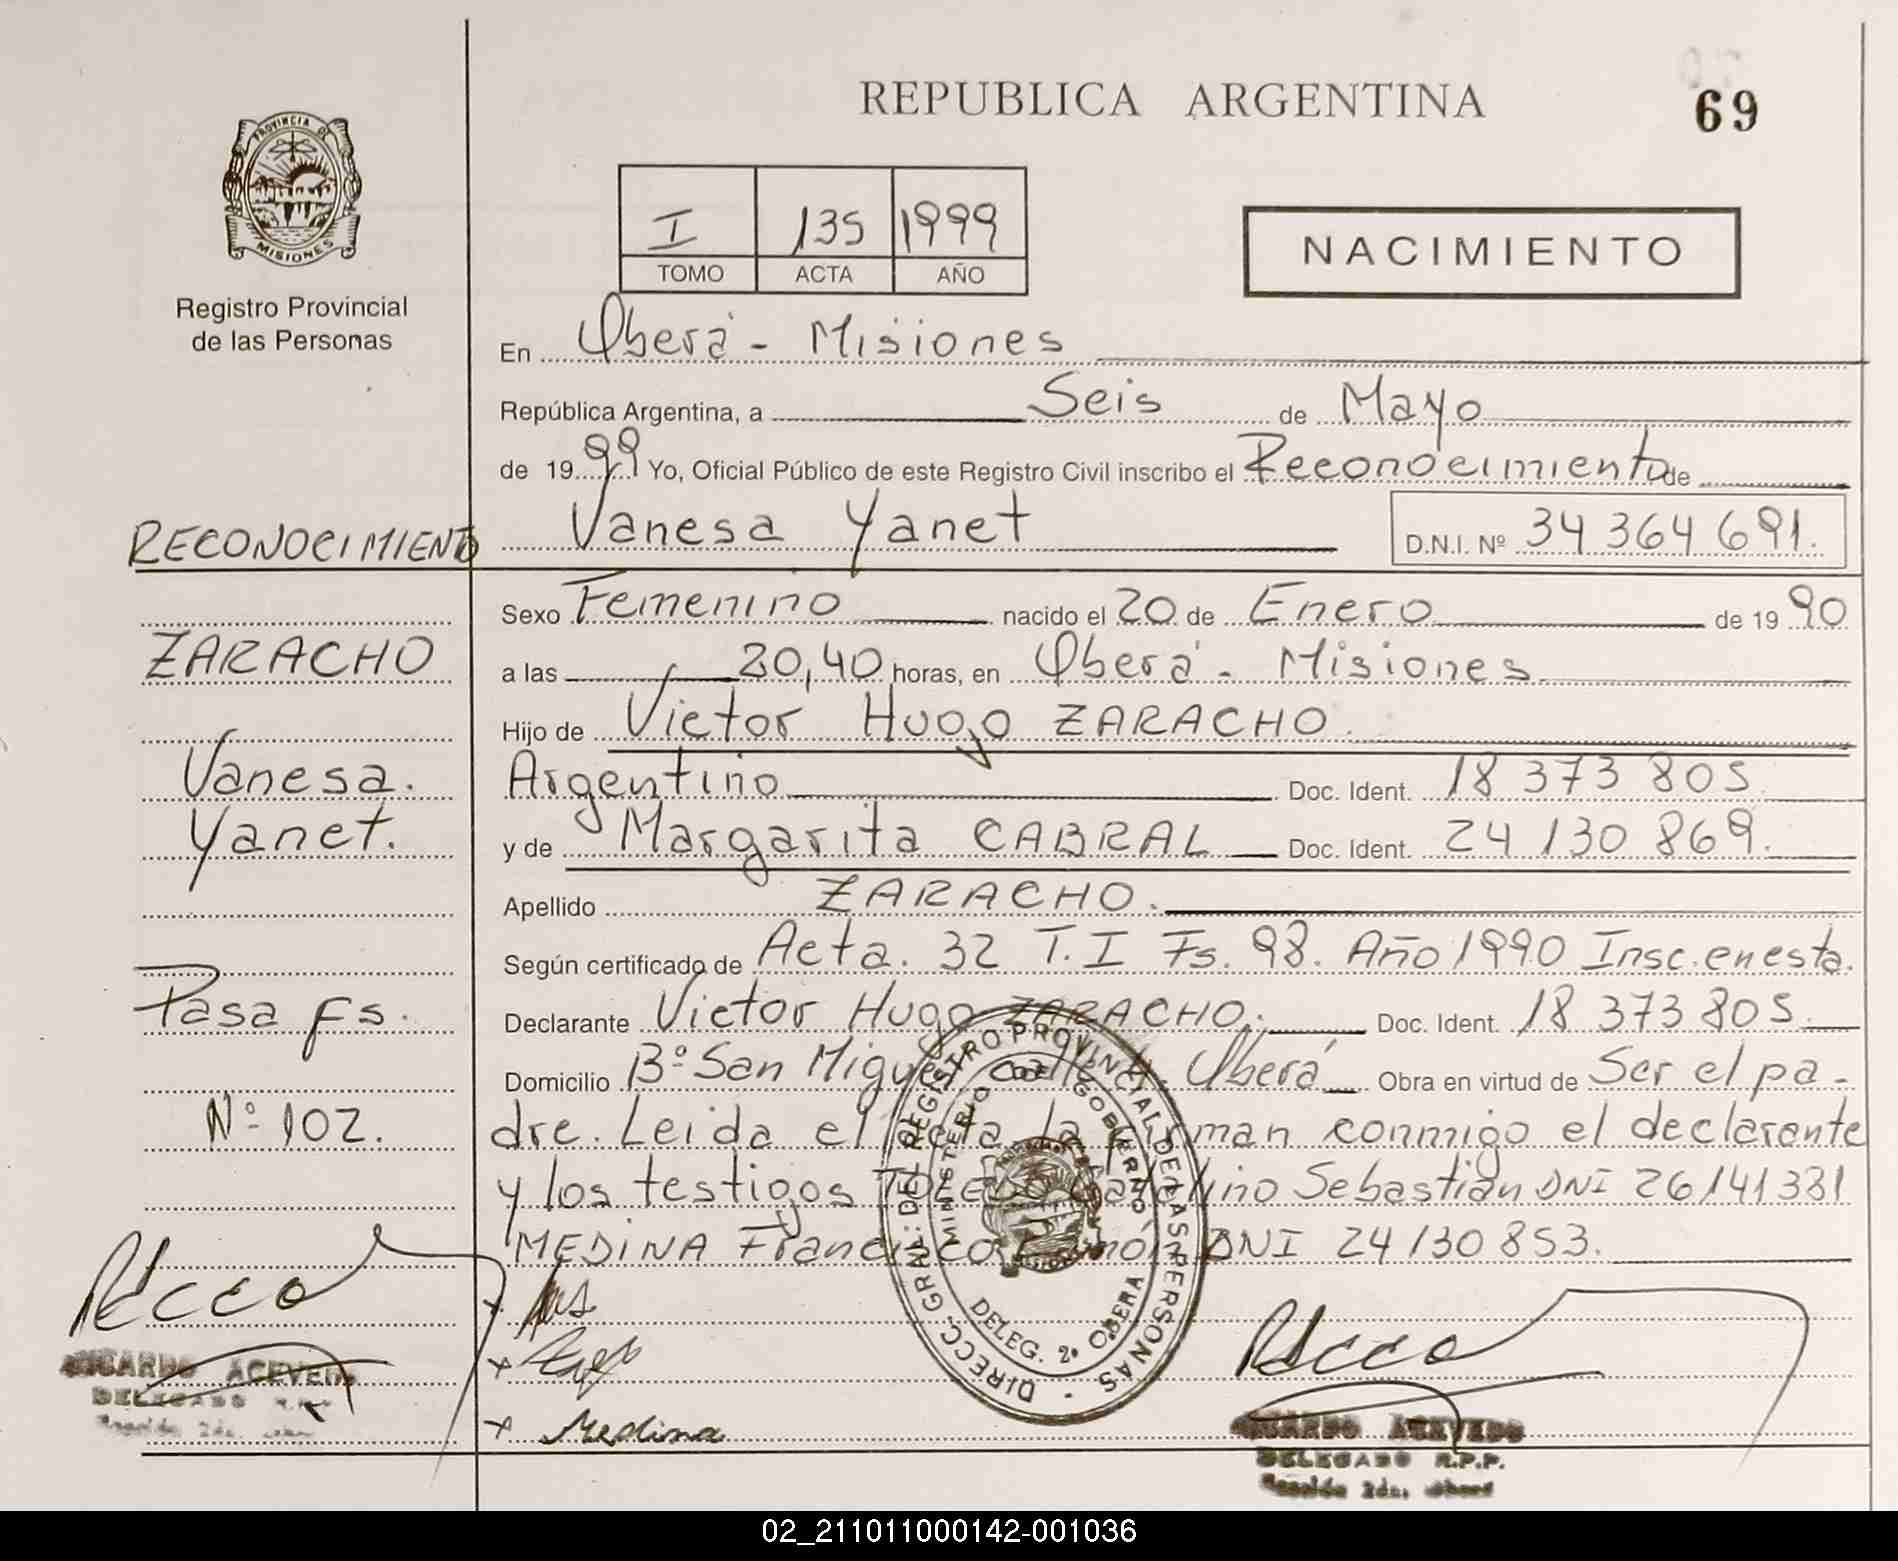 REPUBLICA ARGENTINA
69
PROVINCIA DE
MISIONES
Registro Provincial
de las Personas
I 135 1999
TOMO ACTA AÑO
NACIMIENTO
En Oberá - Misiones
República Argentina, a Seis de Mayo
de 1999 Yo, Oficial Público de este Registro Civil inscribo el Reconocimiento de
Vanesa Yanet
D.N.I. Nº 34 364 691.
RECONOCIMIENTO
Sexo Femenino nacido el 20 de Enero de 1990
ZARACHO
a las 20,40 horas, en Oberá - Misiones
Hijo de Victor Hugo ZARACHO.
Vanesa.
Argentino Doc. Ident. 18 373 805.
Yanet.
y de Margarita CABRAL Doc. Ident. 24 130 869.
Apellido ZARACHO.
Según certificado de Acta. 32 T. I Fs. 98. Año 1990 Insc. en esta.
Pasa Fs.
Declarante Victor Hugo ZARACHO. Doc. Ident. 18 373 805.
Domicilio Bº San Miguel calle Oberá Obra en virtud de Ser el pa-
Nº 102.
dre. Leida el acta la firman conmigo el declarante
y los testigos TOLEDO Sebastián DNI 26 141 381
MEDINA Francisco Ramón DNI 24 130 853.
DIRECC. GRAL. DEL REGISTRO PROVINCIAL DE LAS PERSONAS
MINISTERIO DE GOBIERNO
DELEG. 2ª OBERA
Medina
RICARDO ACEVEDO
DELEGADO R.P.P.
RICARDO ACEVEDO
DELEGADO R.P.P.
02_211011000142-001036